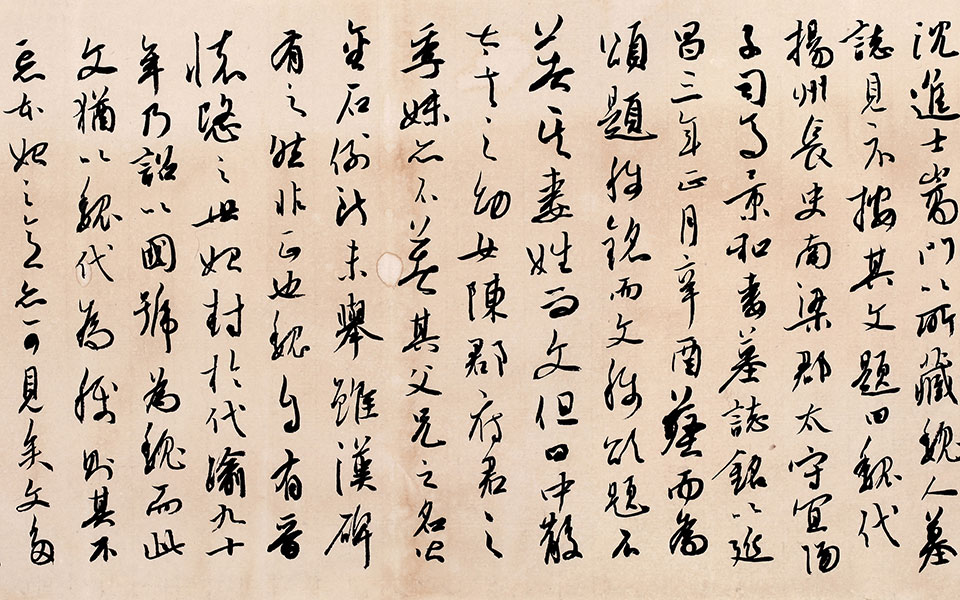 沈進士嵩門以所藏魏人墓
誌見示按其文題曰魏代
揚州長史南梁郡太守宜陽
子司馬景和妻墓誌銘以延
昌三年正月辛酉葬而為
頌題稱銘而文稱頌題不
著其妻姓而文但曰中散
大夫之幼女陳郡府君之
季妹亦不著其父兄之名於
金石例皆未舉雖漢碑
有之然非正也魏自有晉
懷愍之世始封於代渝九十
年乃詔以國號為魏而此
文猶以魏代為稱則其不
忘本始之意亦可見矣文多